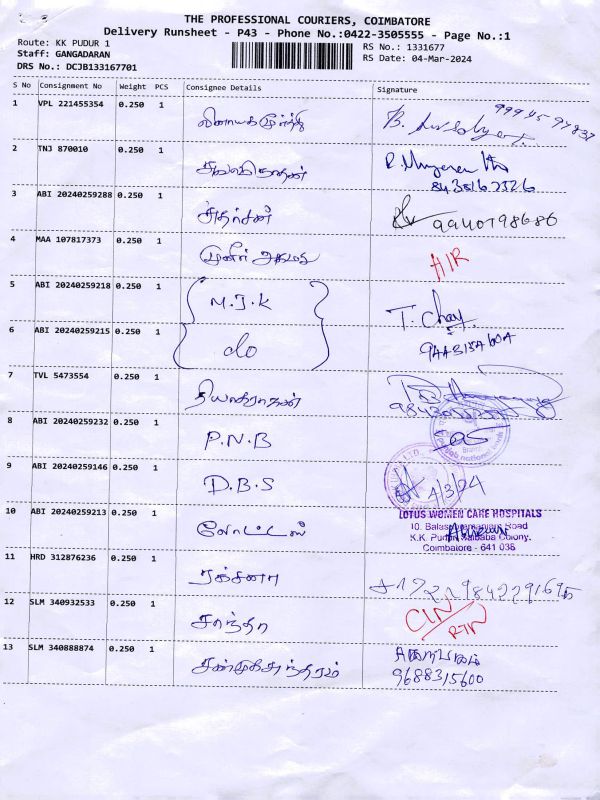 THE PROFESSIONAL COURIERS, COIMBATORE
Delivery Runsheet - P43 - Phone No.:0422-3505555 - Page No.:1
Route: KK PUDUR 1
RS No.: 1331677
Staff: GANGADARAN
RS Date: 04-Mar-2024
DRS No.: DCJB133167701
S No Consignment No Weight PCS Consignee Details Signature
1 VPL 221455354 0.250 1 விநாயகமூர்த்தி B.
2 TNJ 870010 0.250 1
3 ABI 20240259288 0.250 1 சுதர்சன் 9940798686
4 MAA 107817373 0.250 1 முனீர் அகமது AIR
5 ABI 20240259218 0.250 1 M.J.K T. Chay
6 ABI 20240259215 0.250 1 do
7 TVL 5473554 0.250 1 தியாகராஜன்
8 ABI 20240259232 0.250 1 P.N.B
9 ABI 20240259146 0.250 1 D.B.S 4/3/24
10 ABI 20240259213 0.250 1 லோட்டஸ் LOTUS WOMEN CARE HOSPITALS
10. Balasubramaniam Road
K.K. Pudur, Saibaba Colony,
Coimbatore - 641 038
11 HRD 312876236 0.250 1 ரக்சனா
12 SLM 340932533 0.250 1 சாந்தா CIN/RTN
13 SLM 340888874 0.250 1 சண்முகசுந்தரம்
9688315600